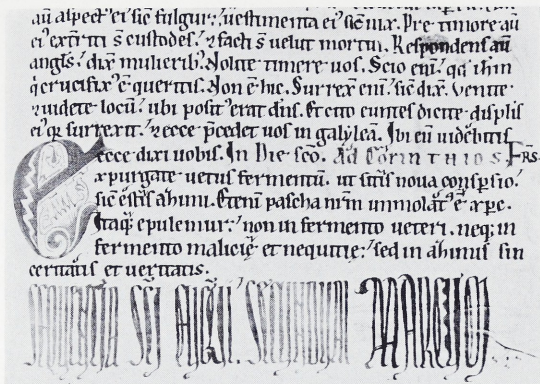 aū aspect' ei' sic̄ fulgur: uestimenta ei' sic̄ nix. Pre timore aū
ei' ext̄riti s̄ custodes: ⁊ facti s̄ uelut mortui. Respondens aū
angl's dix̄ mulierib'. Nolite timere uos. Scio enī qd̄ ihm̄
q̄ crucifix' ē queritis. Non ē hic. Surrex̄ enī sic̄ dix̄. Uenite
⁊ uidete locū ubi posit' erat dn̄s. Et cito euntes dicite displis
ei' q; surrexit. ⁊ ecce p̄cedet uos in galyleā. Ibi eū uidebitis
ecce dixi uobis. In Die sc̄o. Ad Corinthios. Fr̄s.
Expurgate uetus fermentū. ut sitis noua conspsio.
sic̄ estis azimi. Etenī pascha nrm̄ immolat' ē xp̄c.
Itaq; epulemur: non in fermento ueteri. neq; in
fermento malicię et nequitię: sed in azimis sin
ceritatis et ueritatis.
SEQUENTIA SC̄I EUGL̄I. SECUNDUM MARCUM